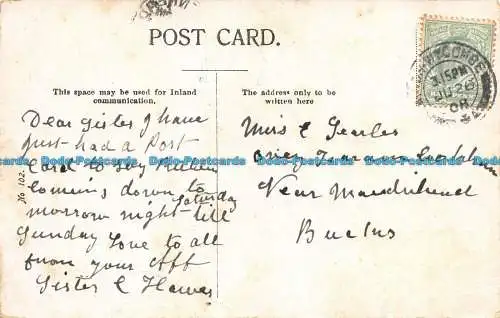 POST CARD.
This space may be used for Inland
communication.
The address only to be
written here
Dear Sister I have
just had a Post
Card to say
coming down to
morrow night till
Saturday
Sunday Love to all
from your Aff
Sister E
No. 102.
Miss E
Near Maidenhead
Bucks
3.15PM
JU 26
08
Dodo-Postcards Dodo-Postcards Dodo-Postcards Dodo-Postcards Dodo-Postcards